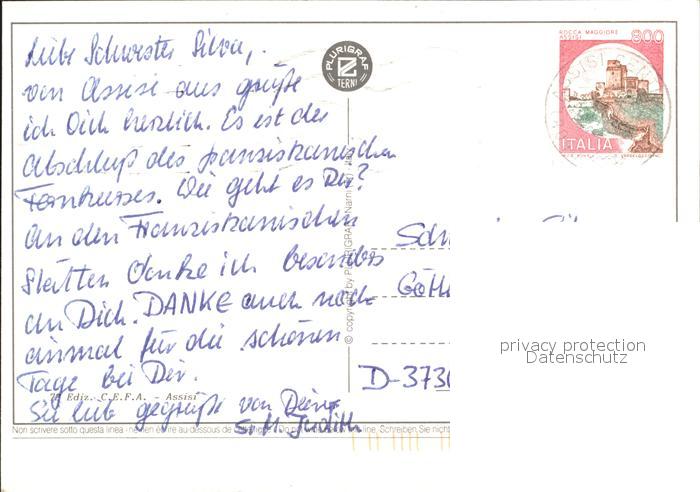 Liebe Schwester Silva,
von Assisi aus grüße
ich Dich herzlich. Es ist der
Abschluß des franziskanischen
Fernkurses. Wie geht es Dir?
An den Franziskanischen
Stätten danke ich besonders
an Dich. DANKE auch noch
einmal für die schönen
Tage bei Dir.
Sei lieb gegrüßt von Deine
Sr. M. Judith
PLURIGRAF
TERNI
ROCCA MAGGIORE
ASSISI
800
ITALIA
© copyright by PLURIGRAF
Göttl
D-3730
privacy protection
Datenschutz
Ediz. C.E.F.A. - Assisi
Non scrivere sotto questa linea - ne rien écrire au-dessous de
line, Schreiben Sie nicht